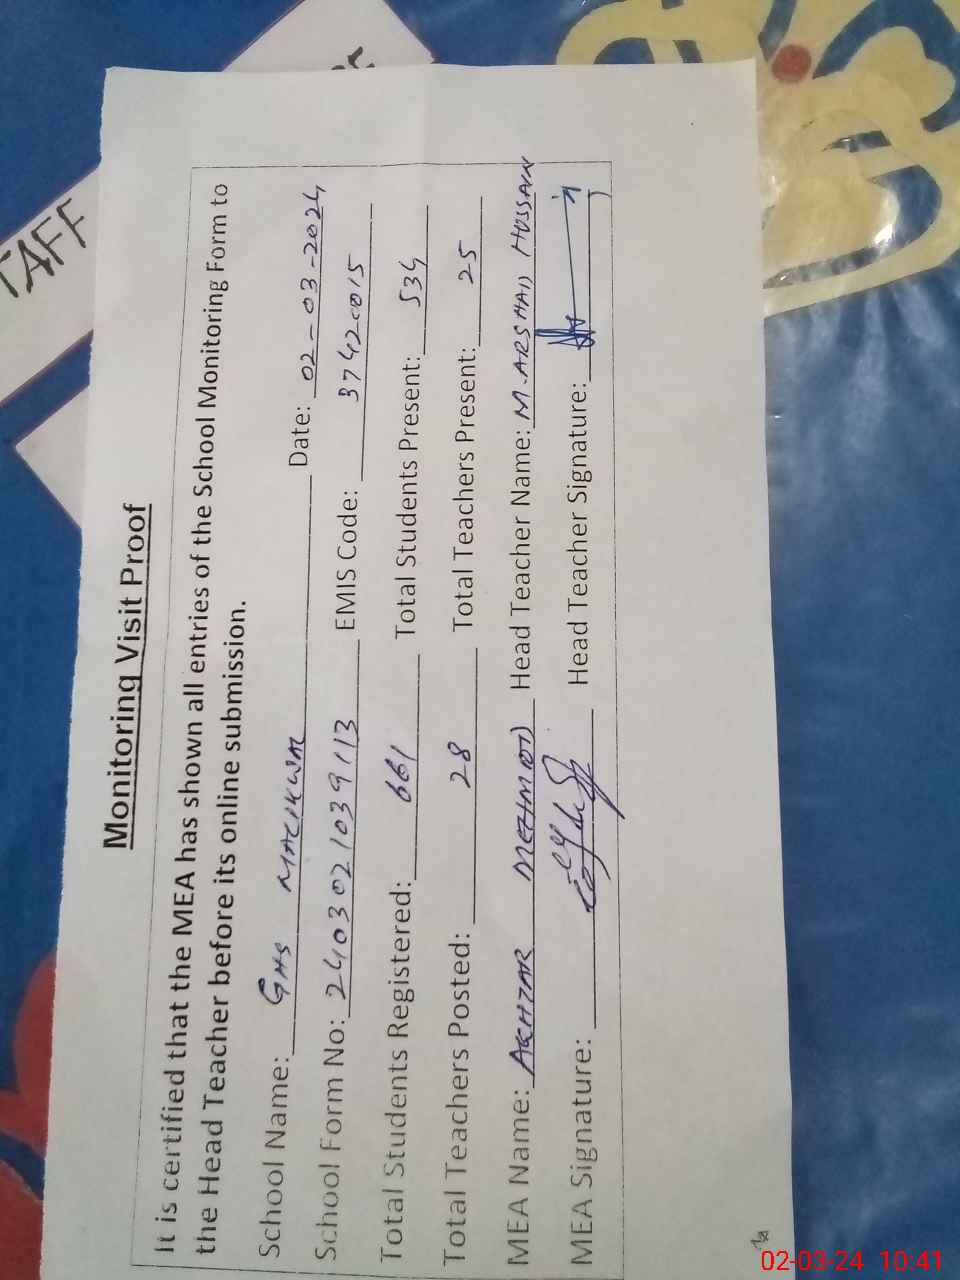 TAFF
Monitoring Visit Proof
It is certified that the MEA has shown all entries of the School Monitoring Form to
the Head Teacher before its online submission.
School Name: GHS MALIKWAL Date: 02-03-2024
School Form No: 2403021039113 EMIS Code: 37420015
Total Students Registered: 661 Total Students Present: 534
Total Teachers Posted: 28 Total Teachers Present: 25
MEA Name: AKHTAR MEHMOOD Head Teacher Name: M. ARSHAD HUSSAIN
MEA Signature: Head Teacher Signature:
02-03-24 10:41